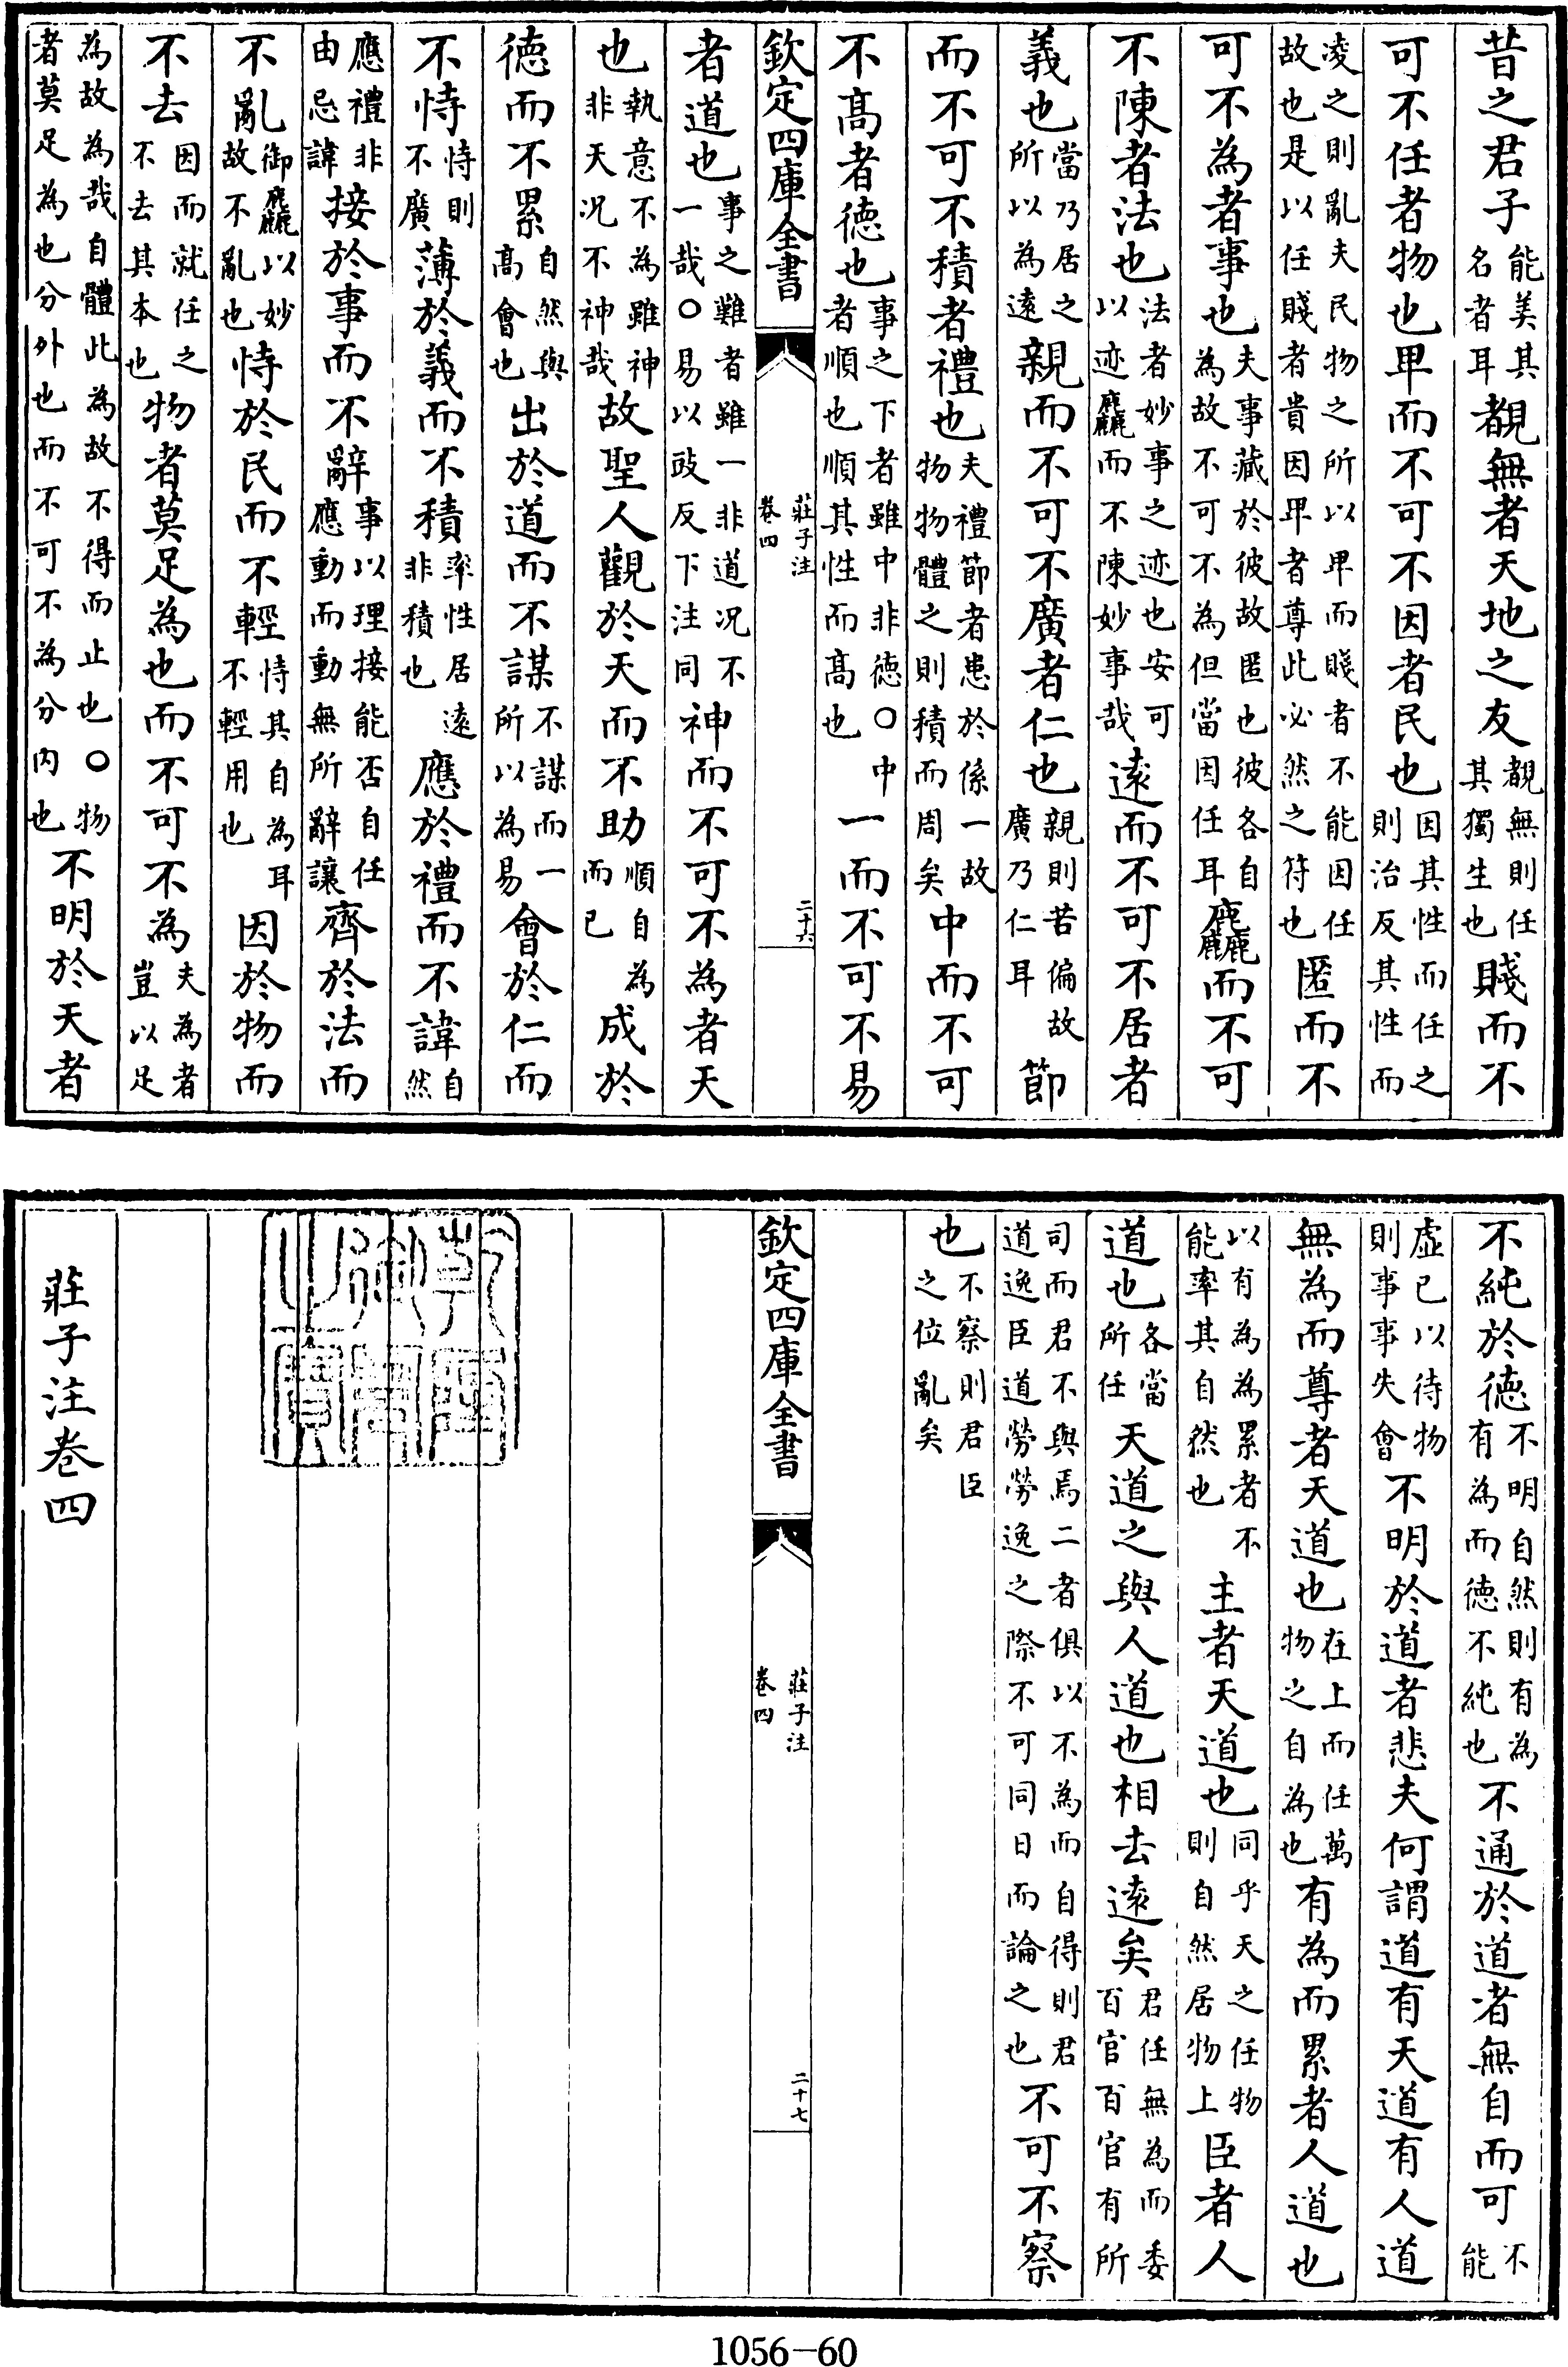 昔之君子能美其名者耳覩無者天地之友覩無則任其獨生也賤而不
可不任者物也卑而不可不因者民也因其性而任之則治反其性而
凌之則亂夫民物之所以卑而賤者不能因任故也是以任賤者貴因卑者尊此必然之符也匿而不
可不為者事也夫事藏於彼故匿也彼各自為故不可不為但當因任耳麤而不可
不陳者法也法者妙事之迹也安可以迹麤而不陳妙事哉遠而不可不居者
義也當乃居之所以為遠親而不可不廣者仁也親則苦偏故廣乃仁耳節
而不可不積者禮也夫禮節者患於係一故物物體之則積而周矣中而不可
不髙者徳也事之下者雖中非徳〇中者順也順其性而髙也一而不可不易
欽定四庫全書
莊子注
卷四
二十六
者道也事之難者雖一非道况不一哉〇易以豉反下注同神而不可不為者天
也執意不為雖神非天况不神哉故聖人觀於天而不助順自為而已成於
徳而不累自然與髙會也出於道而不謀不謀而一所以為易會於仁而
不恃恃則不廣薄於義而不積率性居遠非積也應於禮而不諱自然
應禮非由忌諱接於事而不辭事以理接能否自任應動而動無所辭讓齊於法而
不亂御麤以妙故不亂也恃於民而不輕恃其自為耳不輕用也因於物而
不去因而就任之不去其本也物者莫足為也而不可不為夫為者豈以足
為故為哉自體此為故不得而止也〇物者莫足為也分外也而不可不為分内也不明於天者
不純於徳不明自然則有為有為而徳不純也不通於道者無自而可不能
虛已以待物則事事失會不明於道者悲夫何謂道有天道有人道
無為而尊者天道也在上而任萬物之自為也有為而累者人道也
以有為為累者不能率其自然也主者天道也同乎天之任物則自然居物上臣者人
道也各當所任天道之與人道也相去遠矣君任無為而委百官百官有所
司而君不與焉二者俱以不為而自得則君道逸臣道勞勞逸之際不可同日而論之也不可不察
也不察則君臣之位亂矣
欽定四庫全書
莊子注
卷四
二十七
乾隆御覽之寶
莊子注卷四
1056-60